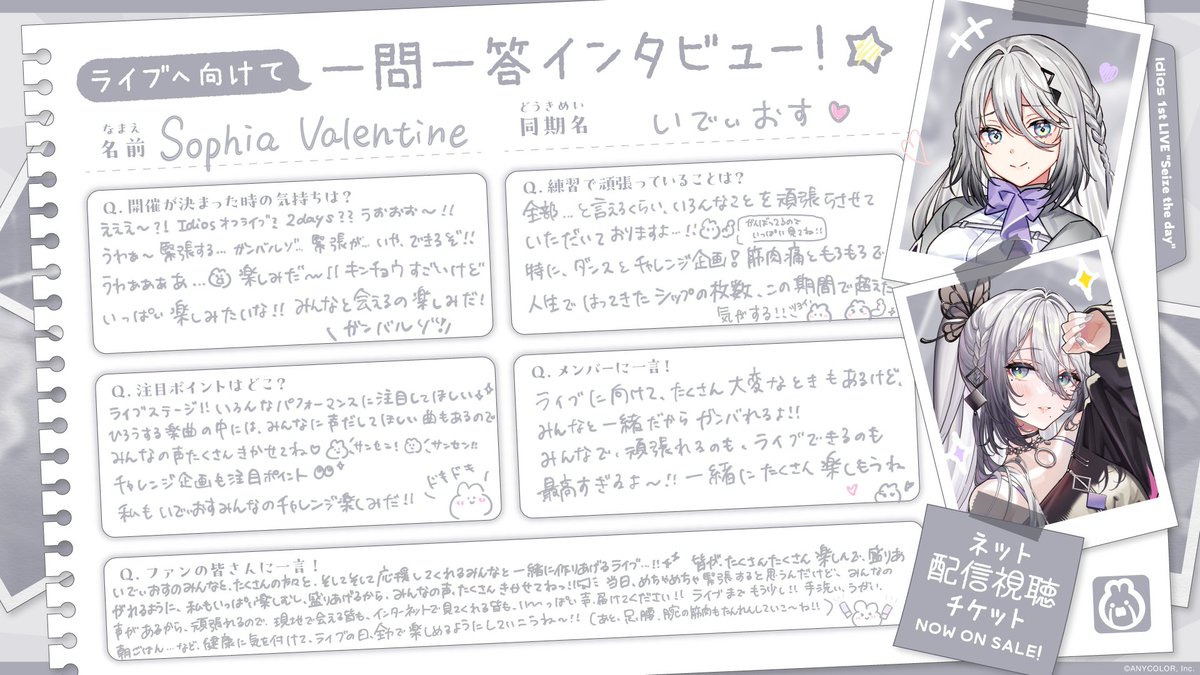 ライブへ向けて
一問一答インタビュー!
なまえ
名前
Sophia Valentine
どうきめい
同期名
いでぃおす
Q. 開催が決まった時の気持ちは?
えええ〜?! Idios オフライブ? 2days?? うおおお〜!!
うわぁ〜 緊張する… ガンバルゾ… 緊張が… いや、できるぞ!!
うわぁぁぁあ… 楽しみだ〜!! キンチョウすごいけど
いっぱい楽しみたいな!! みんなと会えるの楽しみだ!
ガンバルゾ!!
Q. 練習で頑張っていることは?
全部…と言えるくらい、いろんなことを頑張らせて
いただいておりますよ…!!
がんばってるので
いっぱい見てね!!
特に、ダンスとチャレンジ企画!! 筋肉痛ともろもろで
人生ではってきたシップの枚数、この期間で超えた
気がする!!
Q. 注目ポイントはどこ?
ライブステージ!! いろんなパフォーマンスに注目してほしい
ひろうする楽曲の中には、みんなに声だしてほしい曲もあるので
みんなの声たくさんきかせてね♡ サンセン! サンセン!!
チャレンジ企画も注目ポイント
私もいでぃおすみんなのチャレンジ楽しみだ!!
ドキドキ
Q. メンバーに一言!
ライブに向けて、たくさん大変なときもあるけど、
みんなと一緒だからガンバれるよ!!
みんなで、頑張れるのも、ライブできるのも
最高すぎるよ〜!! 一緒にたくさん楽しもうね
Q. ファンの皆さんに一言!
いでぃおすのみんなと、たくさんの方々と、そしてそして応援してくれるみんなと一緒に作りあげるライブ…!! 皆が、たくさんたくさん楽しんで、盛りあ
がれるように、私もいっぱい楽しむし、盛りあげるから、みんなの声、たくさんきかせてねっ!! 当日、めちゃめちゃ緊張すると思うんだけど、みんなの
声があるから、頑張れるので、現地で会える皆も、インターネットで見てくれる皆も、いいっぱい声、届けてください!! ライブまでもう少し!! 手洗い、うがい、
朝ごはん…など、健康に気を付けて、ライブの日、全力で楽しめるようにしていこうね〜!! (あと、足、腰、腕の筋肉もたんれんしていこ〜ね!!)
Idios 1st LIVE "Seize the day"
ネット
配信視聴
チケット
NOW ON SALE!
©ANYCOLOR, Inc.